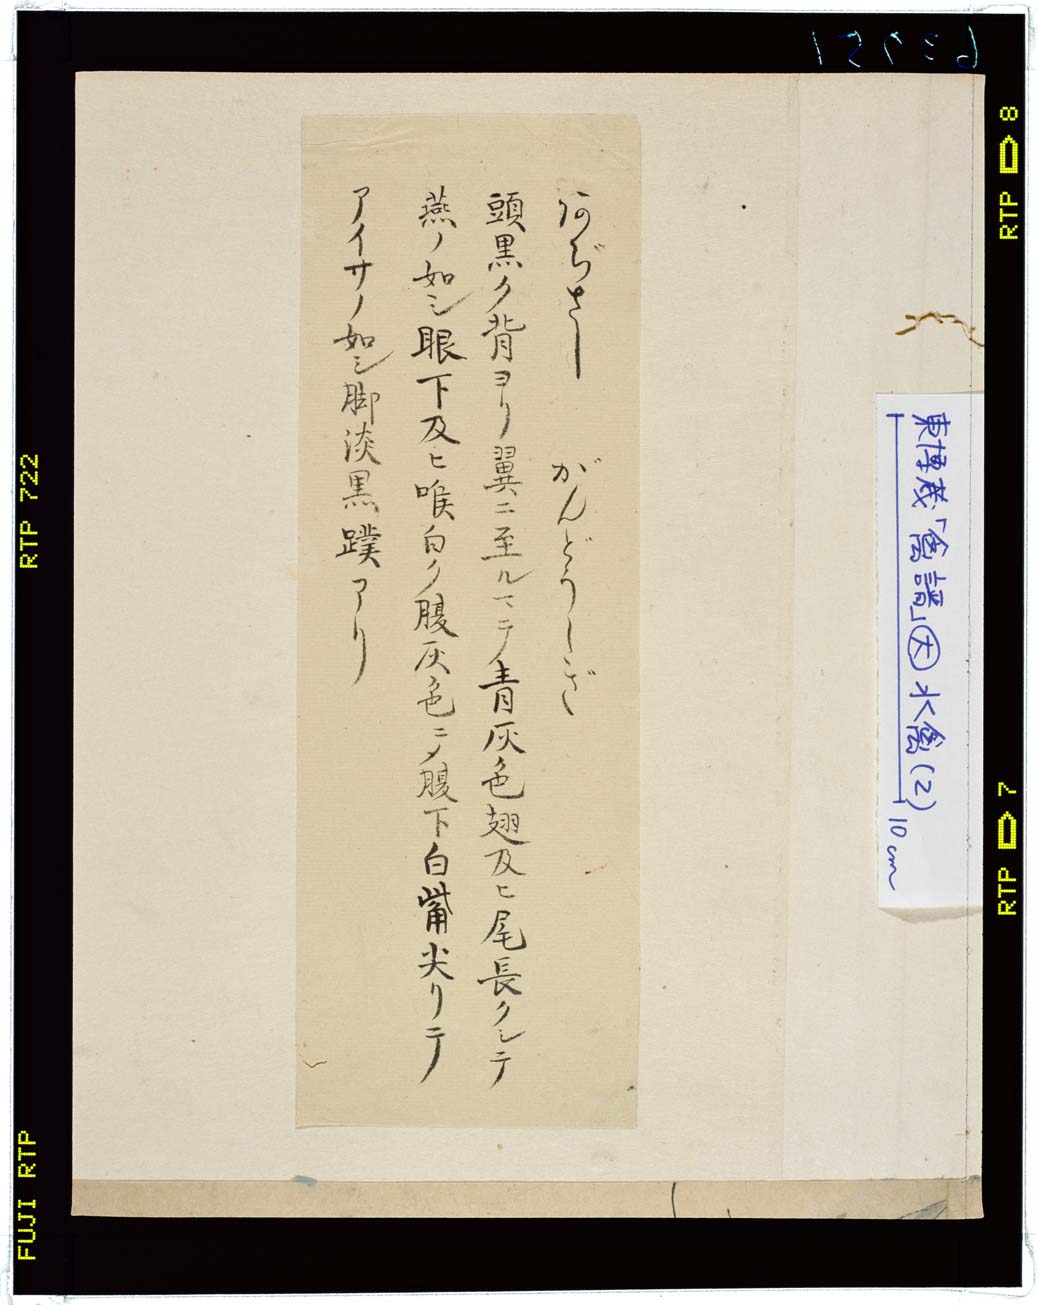 あぢさし　がんどうしぎ
頭黒ク背ヨリ翼ニ至ルマテ青灰色翅及ヒ尾長クシテ
燕ノ如シ眼下及ヒ喉白ク腹灰色ニメ腹下白觜尖リテ
アイサノ如シ脚淡黒蹼アリ
東博蔵「禽譜」大 水禽(2)
10cm
63751
RTP 8
RTP 7
RTP 722
FUJI RTP